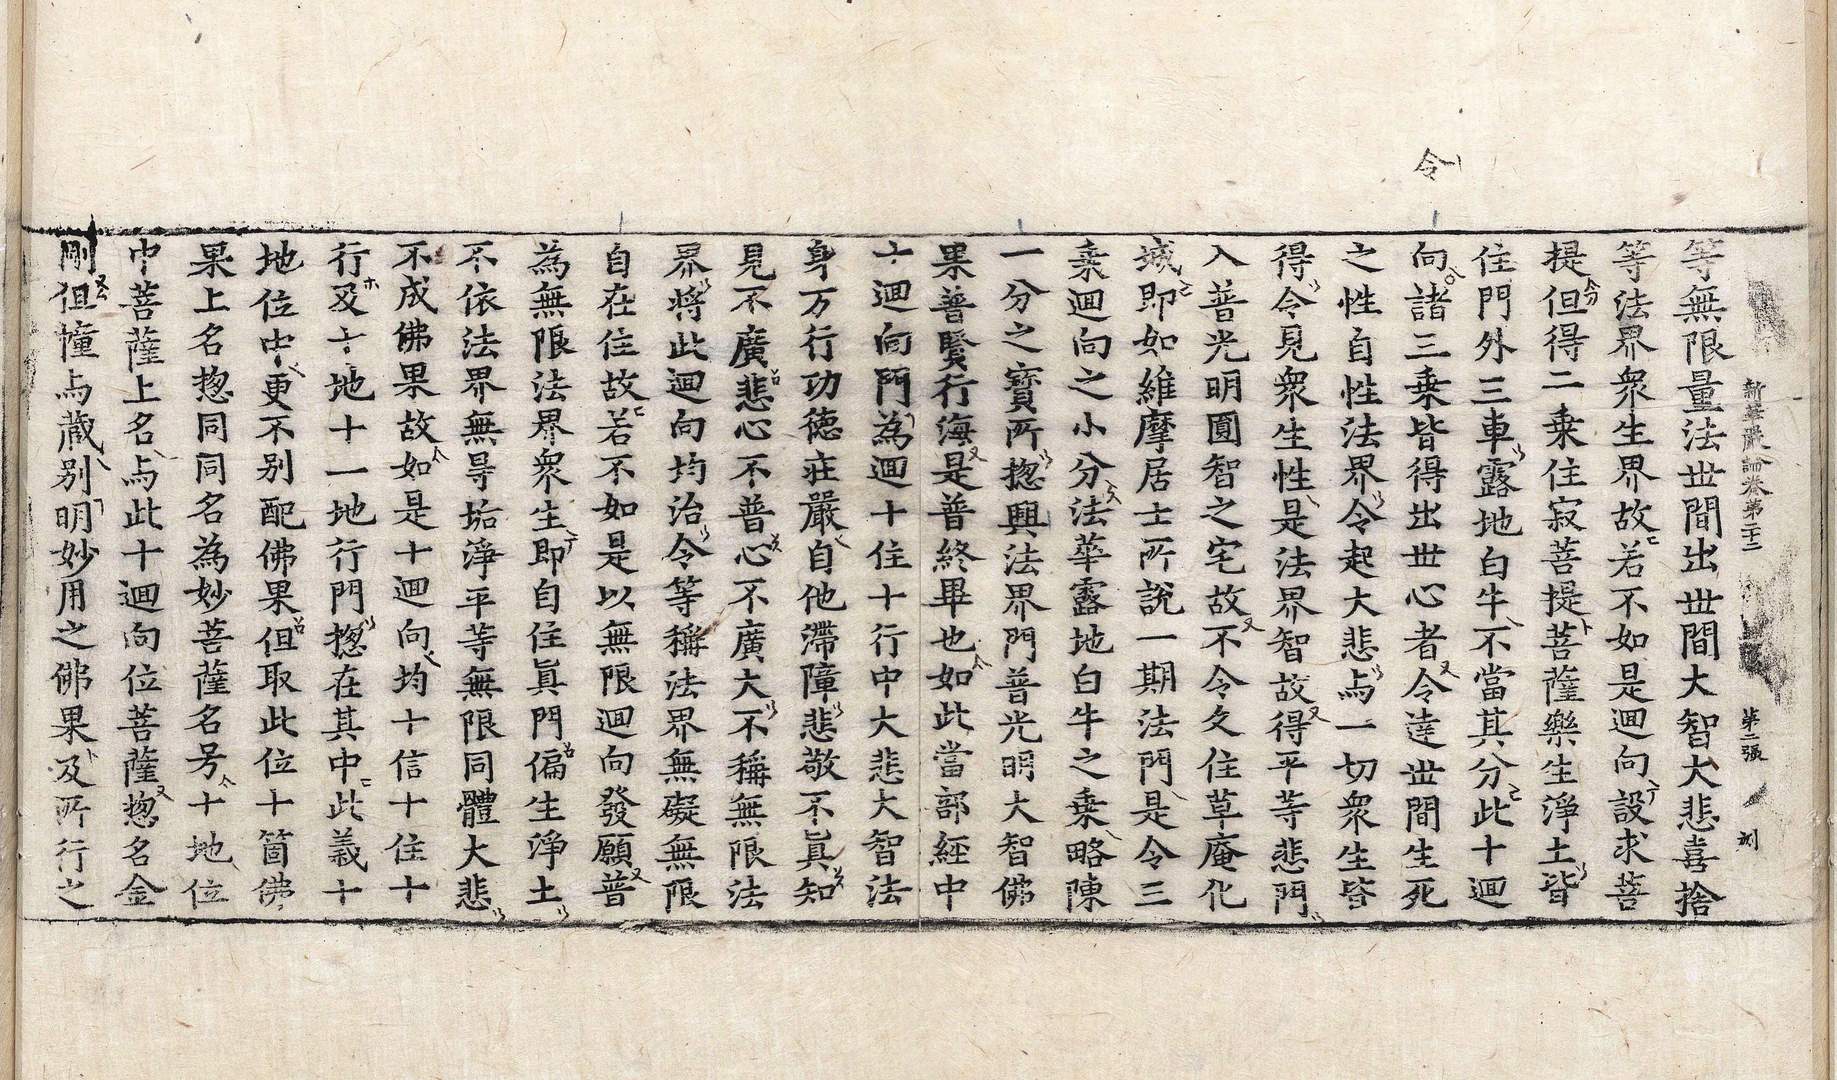 令
新華嚴論卷第二十二　第二張
等無限量法世間出世間大智大悲喜捨
等法界衆生界故若不如是迴向設求菩
提但得二乗住寂菩提菩薩樂生淨土皆
住門外三車露地白牛不當其分此十迴
向諸三乗皆得出世心者令達世間生死
之性自性法界令起大悲与一切衆生皆
得令見衆生性是法界智故得平等悲門
入普光明圓智之宅故不令久住草庵化
城即如維摩居士所說一期法門是令三
乗迴向之小分法華露地白牛之乗略陳
一分之寶所揔興法界門普光明大智佛
果普賢行海是普終畢也如此當部經中
十迴向門為迴十住十行中大悲大智法
身万行功德莊嚴自他滯障悲敬不真知
見不廣悲心不普心不廣大不稱無限法
界將此迴向均治令等稱法界無礙無限
自在住故若不如是以無限迴向發願普
為無限法界衆生即自住真門偏生淨土
不依法界無㝵垢淨平等無限同體大悲
不成佛果故如是十迴向均十信十住十
行及十地十一地行門揔在其中此義十
地位中更不別配佛果但取此位十箇佛
果上名揔同同名為妙菩薩名号十地位
中菩薩上名与此十迴向位菩薩揔名金
剛但幢与藏別明妙用之佛果及所行之